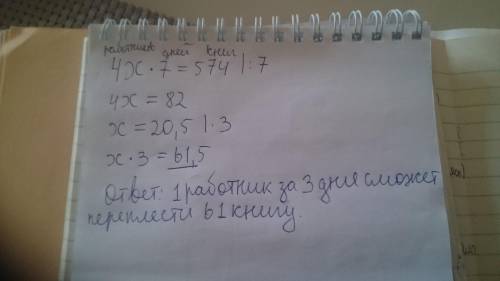 работников дней книг
4x · 7 = 574 | : 7
4x = 82
x = 20,5 | · 3
x · 3 = 61,5
Ответ: 1 работник за 3 дня сможет
переплести 61 книгу.